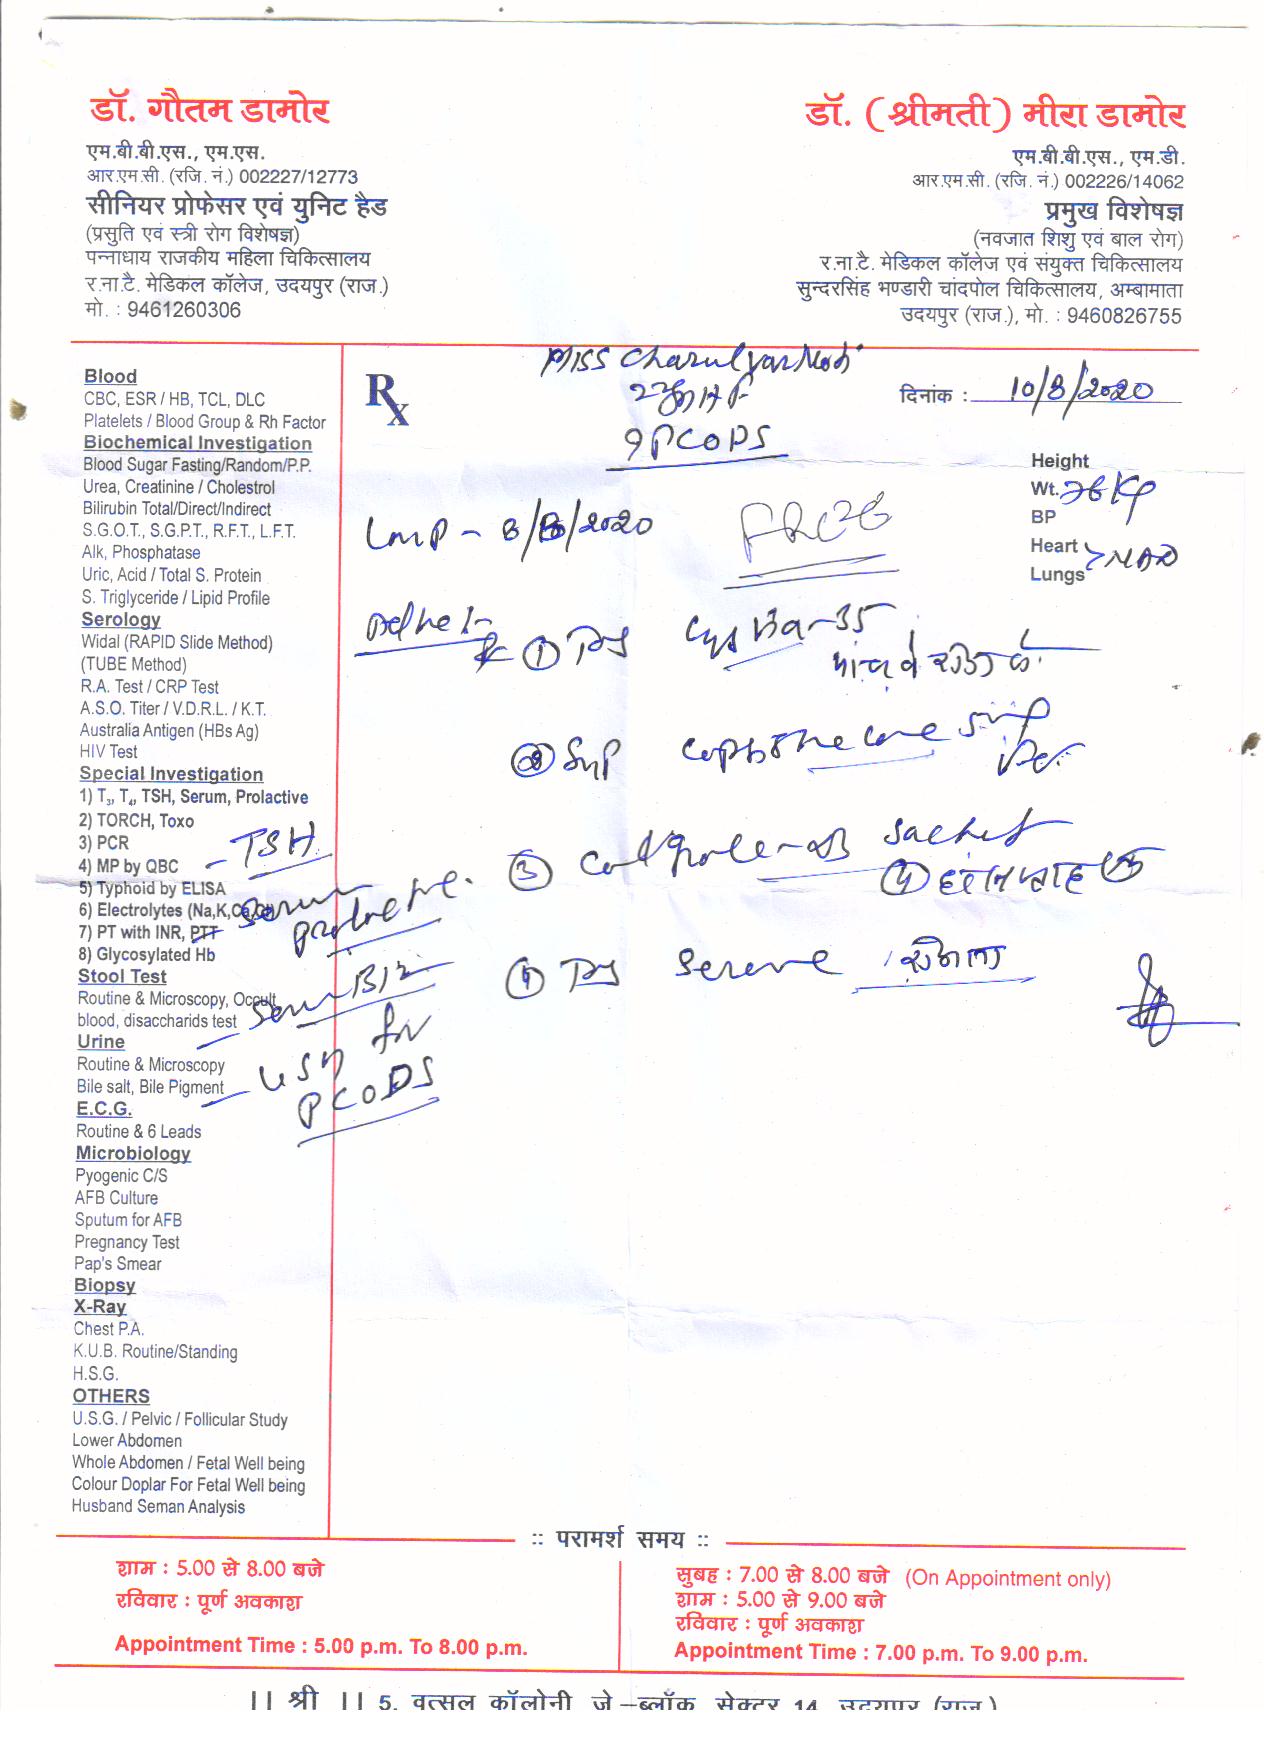 डॉ. गौतम डामोर
एम.बी.बी.एस., एम.एस.
आर.एम.सी. (रजि. नं.) 002227/12773
सीनियर प्रोफेसर एवं युनिट हैड
(प्रसुति एवं स्त्री रोग विशेषज्ञ)
पन्नाधाय राजकीय महिला चिकित्सालय
र.ना.टै. मेडिकल कॉलेज, उदयपुर (राज.)
मो. : 9461260306
डॉ. (श्रीमती) मीरा डामोर
एम.बी.बी.एस., एम.डी.
आर.एम.सी. (रजि. नं.) 002226/14062
प्रमुख विशेषज्ञ
(नवजात शिशु एवं बाल रोग)
र.ना.टै. मेडिकल कॉलेज एवं संयुक्त चिकित्सालय
सुन्दरसिंह भण्डारी चांदपोल चिकित्सालय, अम्बामाता
उदयपुर (राज.), मो. : 9460826755
Blood
CBC, ESR / HB, TCL, DLC
Platelets / Blood Group & Rh Factor
Biochemical Investigation
Blood Sugar Fasting/Random/P.P.
Urea, Creatinine / Cholestrol
Bilirubin Total/Direct/Indirect
S.G.O.T., S.G.P.T., R.F.T., L.F.T.
Alk, Phosphatase
Uric, Acid / Total S. Protein
S. Triglyceride / Lipid Profile
Serology
Widal (RAPID Slide Method)
(TUBE Method)
R.A. Test / CRP Test
A.S.O. Titer / V.D.R.L. / K.T.
Australia Antigen (HBs Ag)
HIV Test
Special Investigation
1) T3, T4, TSH, Serum, Prolactive
2) TORCH, Toxo
3) PCR
4) MP by QBC
5) Typhoid by ELISA
6) Electrolytes (Na,K,Ca,Cl)
7) PT with INR, PTT
8) Glycosylated Hb
Stool Test
Routine & Microscopy, Occult
blood, disaccharids test
Urine
Routine & Microscopy
Bile salt, Bile Pigment
E.C.G.
Routine & 6 Leads
Microbiology
Pyogenic C/S
AFB Culture
Sputum for AFB
Pregnancy Test
Pap's Smear
Biopsy
X-Ray
Chest P.A.
K.U.B. Routine/Standing
H.S.G.
OTHERS
U.S.G. / Pelvic / Follicular Study
Lower Abdomen
Whole Abdomen / Fetal Well being
Colour Doplar For Fetal Well being
Husband Seman Analysis
- TSH
Serum
- Serum B12
- USG for
PCODS
Rx
Miss
PCODS
दिनांक : 10/8/2020
Height
Wt. 76 Kg
BP
Heart > NAD
Lungs
LMP - 8/8/2020
① Tab
② Syp
③ sachet
④ Tab
:: परामर्श समय ::
शाम : 5.00 से 8.00 बजे
रविवार : पूर्ण अवकाश
Appointment Time : 5.00 p.m. To 8.00 p.m.
सुबह : 7.00 से 8.00 बजे (On Appointment only)
शाम : 5.00 से 9.00 बजे
रविवार : पूर्ण अवकाश
Appointment Time : 7.00 p.m. To 9.00 p.m.
|| श्री || 5, वत्सल कॉलोनी जे-ब्लॉक सेक्टर 14, उदयपुर (राज.)